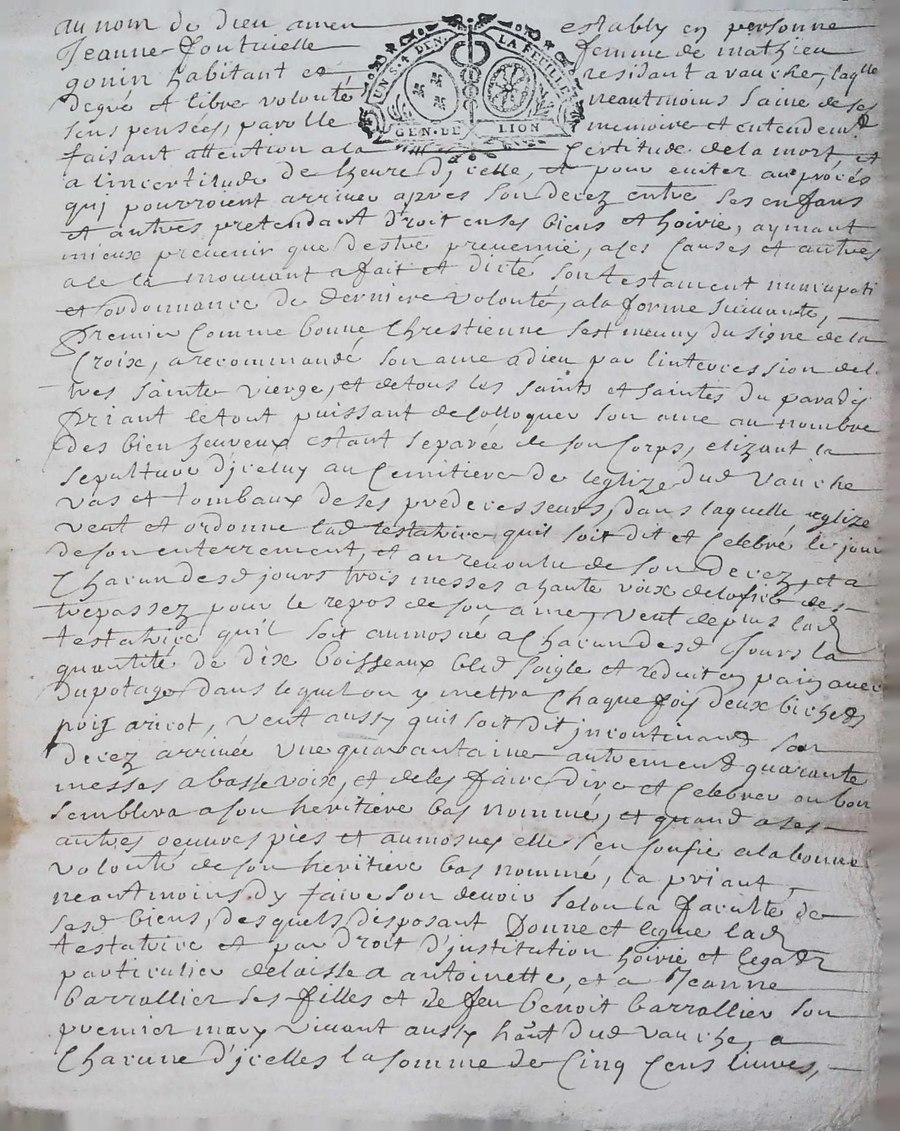 au nom de dieu amen establly en personne
Jeanne fontvielle femme de mathieu
gonin habitant et residant a vauche, laqlle
UN. S. 4 DEN. LA FEUILLE
degré et libre volonté neantmoins saine de ses
sens pensées, parolle memoire et entendemt
GEN. DE LION
faisant attention a la certitude de la mort, et
a lincertitude de lheure d'jcelle, et pour eviter au procés
quj pourroient arriver apres son decez entre ses enfans
et autres pretendant droit en ses biens et hoirie, aymant
mieux prevenir que destre prevenüe, a ces causes et autres
a ce la mouvant a fait et dicté son testament nuncupati
et ordonnance de derniere volonté, a la forme suivante, –
premier comme bonne chrestienne sest muny du signe de la
Croix, a recommandé son ame a dieu par lintercession de la
tres sainte vierge, et de tous les saints et saintes du paradis
priant le tout puissant de colloquer son ame au nombre
des bien heureux estant separée de son Corps, elizant la
sepulture d'jceluy au Cemitiere de leglize dud vauche
vas et tombaux de ses predecesseurs, dans laquelle eglize
veut et ordonne lad testatrice quil soit dit et celebré le jour
de son enterrement, et au revoulu de son decez, et a
Chacun desd jours trois messes a haute voix de loffice des
trepassez pour le repos de son ame, veut de plus lad
testatrice qu'il soit aumosné a Chacun desd jours la
quantité de dix boisseaux bled soigle et reduit en pain avec
du potage dans lequel on y mettra Chaque fois deux bichets
pois aricot, veut aussy quil soit dit jncontinand son
decez arrivée une quarantaine autrement quarante
messes a basse voix, et de les faire dire et Celebrer ou bon
semblera a son heritiere bas nommé, et quand a ses –
autres oeuvres pies et aumosnes elle s'en confie a la bonne
volonté de son heritiere bas nommé, la priant –
neantmoins d'y faire son devoir selon la faculté de
sesd biens, desquels disposant Donne et legue lad
testatrice et par droit d'jnstitution hoirie et legat
particulier delaisse a antoinette, et a Jeanne
barrallier ses filles et de feu benoit barrallier son
premier mary vivant aussy hãnt dud vauche, a
Chacune d'jcelles la somme de Cinq Cens livres, –